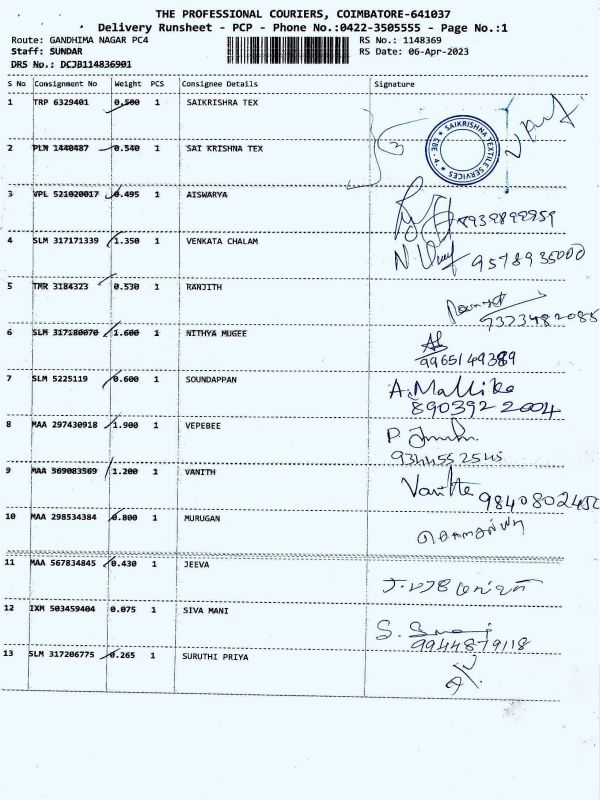 THE PROFESSIONAL COURIERS, COIMBATORE-641037
Delivery Runsheet - PCP - Phone No.:0422-3505555 - Page No.:1
Route: GANDHIMA NAGAR PC4 RS No.: 1148369
Staff: SUNDAR RS Date: 06-Apr-2023
DRS No.: DCJB114836901
S No Consignment No Weight PCS Consignee Details Signature
1 TRP 6329401 0.500 1 SAIKRISHRA TEX
SAIKRISHNA TEXTILE SERVICES CBE - 4.
2 PLN 1440487 0.540 1 SAI KRISHNA TEX
3
3 VPL 521020017 0.495 1 AISWARYA
4 SLM 317171339 1.350 1 VENKATA CHALAM
9578935000
5 TMR 3184323 0.530 1 RANJITH
9373482085
6 SLM 317180070 1.600 1 NITHYA MUGEE
9965149389
7 SLM 5225119 0.600 1 SOUNDAPPAN A. Mallika
8903922004
8 MAA 297430918 1.900 1 VEPEBEE
9344552545
9 MAA 569083569 1.200 1 VANITH
9840802450
10 MAA 298534384 0.800 1 MURUGAN
11 MAA 567834845 0.430 1 JEEVA
12 IXM 503459404 0.075 1 SIVA MANI
9944879118
13 SLM 317206775 0.265 1 SURUTHI PRIYA